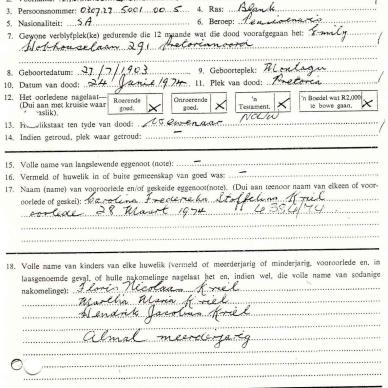 3. Persoonsnommer: 030727 5001 00 5 4. Ras: Blank
5. Nasionaliteit: SA 6. Beroep: Pensioenaris
7. Gewone verblyfplek(ke) gedurende die 12 maande wat die dood voorafgegaan het: Emily
Hobhouselaan 291 Pretorianoord
8. Geboortedatum: 27/7/1903 9. Geboorteplek: Montagu
10. Datum van dood: 24 Junie 1974 11. Plek van dood: Pretoria
12. Het oorledene nagelaat—
(Dui aan met kruisie waar
Roerende goed. X Onroerende goed. X 'n Testament. X 'n Boedel wat R2,000 te bowe gaan. X
13. Huwelikstaat ten tyde van dood: Wewenaar
14. Indien getroud, plek waar getroud: —
15. Volle naam van langslewende eggenoot (note): —
16. Vermeld of huwelik in of buite gemeenskap van goed was: —
17. Naam (name) van vooroorlede en/of geskeide eggenoot(note). (Dui aan teenoor naam van elkeen of voor-
oorlede of geskei): Carolina Frederika Stoffelina Kriel
oorlede 28 Maart 1974 4354/74
18. Volle name van kinders van elke huwelik (vermeld of meerderjarig of minderjarig, vooroorlede en, in
laasgenoemde geval, of hulle nakomelinge nagelaat het en, indien wel, die volle name van sodanige
nakomelinge): Floris Nicolaas Kriel
Martha Maria Kriel
Hendrik Jacobus Kriel
Almal meerderjarig